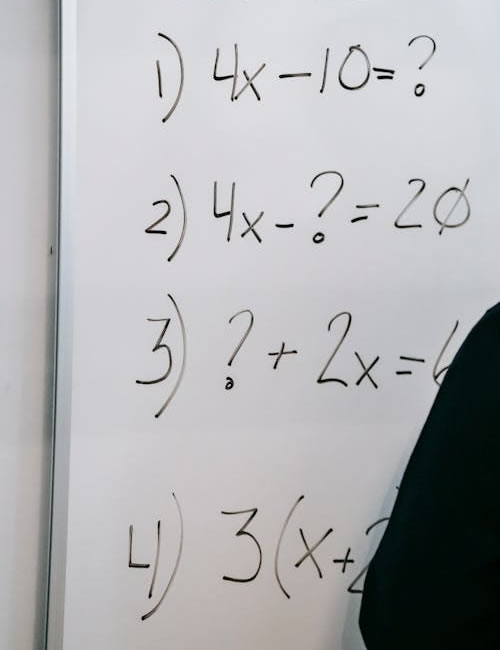 1) 4x-10=?
2) 4x-?=20
3) ?+2x=
4) 3(x+